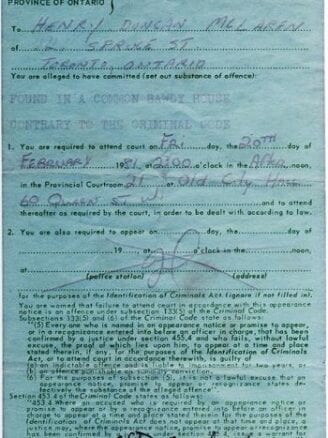 PROVINCE OF ONTARIO
To HENRY DUNCAN McLAREN
of 2 SPRUCE ST
TORONTO, ONTARIO
You are alleged to have committed (set out substance of offence):
FOUND IN A COMMON BAWDY HOUSE
CONTRARY TO THE CRIMINAL CODE
1. You are required to attend court on FRI day, the 20TH
FEBRUARY 1981 at 2:00 o'clock in the AFTER noon,
in the Provincial Courtroom 21 Old City Hall
60 QUEEN ST W and to attend
thereafter as required by the court, in order to be dealt with according to law.
2. You are also required to appear on day, the day of
19 at o'clock in the noon,
at
(police station) (address)
for the purposes of the Identification of Criminals Act (ignore if not filled in).
You are warned that failure to attend court in accordance with this appearance
notice is an offence under subsection 133(5) of the Criminal Code.
Subsections 133(5) and (6) of the Criminal Code state as follows:
"(5) Every one who is named in an appearance notice or promise to appear,
or in a recognizance entered into before an officer in charge, that has been
confirmed by a justice under section 455.4 and who fails, without lawful
excuse, the proof of which lies upon him, to appear at a time and place
stated therein, if any, for the purposes of the Identification of Criminals
Act, or to attend court in accordance therewith, is guilty of
(a) an indictable offence and is liable to imprisonment for two years, or
(b) an offence punishable on summary conviction.
(6) For the purposes of subsection (5), it is not a lawful excuse that an
appearance notice, promise to appear or recognizance states
defectively the substance of the alleged offence"
Section 453.4 of the Criminal Code states as follows:
"453.4 Where an accused who is required by an appearance notice or
promise to appear or by a recognizance entered into before an officer in
charge to appear at a time and place stated therein for the purposes of the
Identification of Criminals Act does not appear at that time and place, a
justice may, where the appearance notice, promise to appear or recognizance
has been confirmed by a justice under section